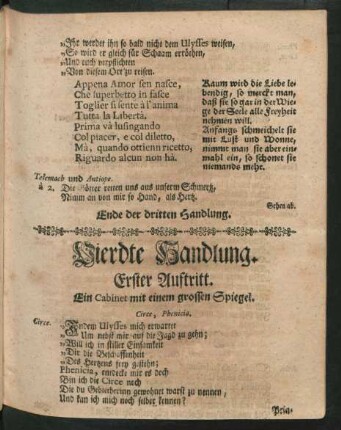 „Ihr werdet ihn so bald nicht dem Ulysses weisen,
„So wird er gleich für Schaam erröthen,
„Und euch verpflichten
„Von diesem Ort zu reisen.
Appena Amor sen nasce,
Che superbetto in fasce
Toglier si sente à l'anima
Tutta la Libertà.
Prima và lusingando
Col piacer, e col diletto,
Mà, quando ottienn ricetto,
Riguardo alcun non hà.
Kaum wird die Liebe lebendig, so merckt man,
daß sie so gar in der Wiege der Seele alle Freyheit
nehmen will.
Anfangs schmeichelt sie
mit Lust und Wonne,
nimmt man sie aber einmahl ein, so schonet sie
niemands mehr.
Telemach und Antiope.
à 2. Die Götter retten uns aus unserm Schmertz,
Nimm an von mir so Hand, als Hertz.
Gehen ab.
Ende der dritten Handlung.
Vierdte Handlung.
Erster Auftritt.
Ein Cabinet mit einem grossen Spiegel.
Circe, Phenicia.
Circe.
„Indem Ulysses mich erwartet
„Um nebst mir auf die Jagd zu gehn;
„Will ich in stiller Einsamkeit
„Dir die Beschaffenheit
„Des Hertzens frey gestehn;
Phenicia, entdecke mir es doch
Bin ich die Circe noch
Die du Gebietherinn gewohnet warst zu nennen,
Und kan ich mich noch selber kennen?